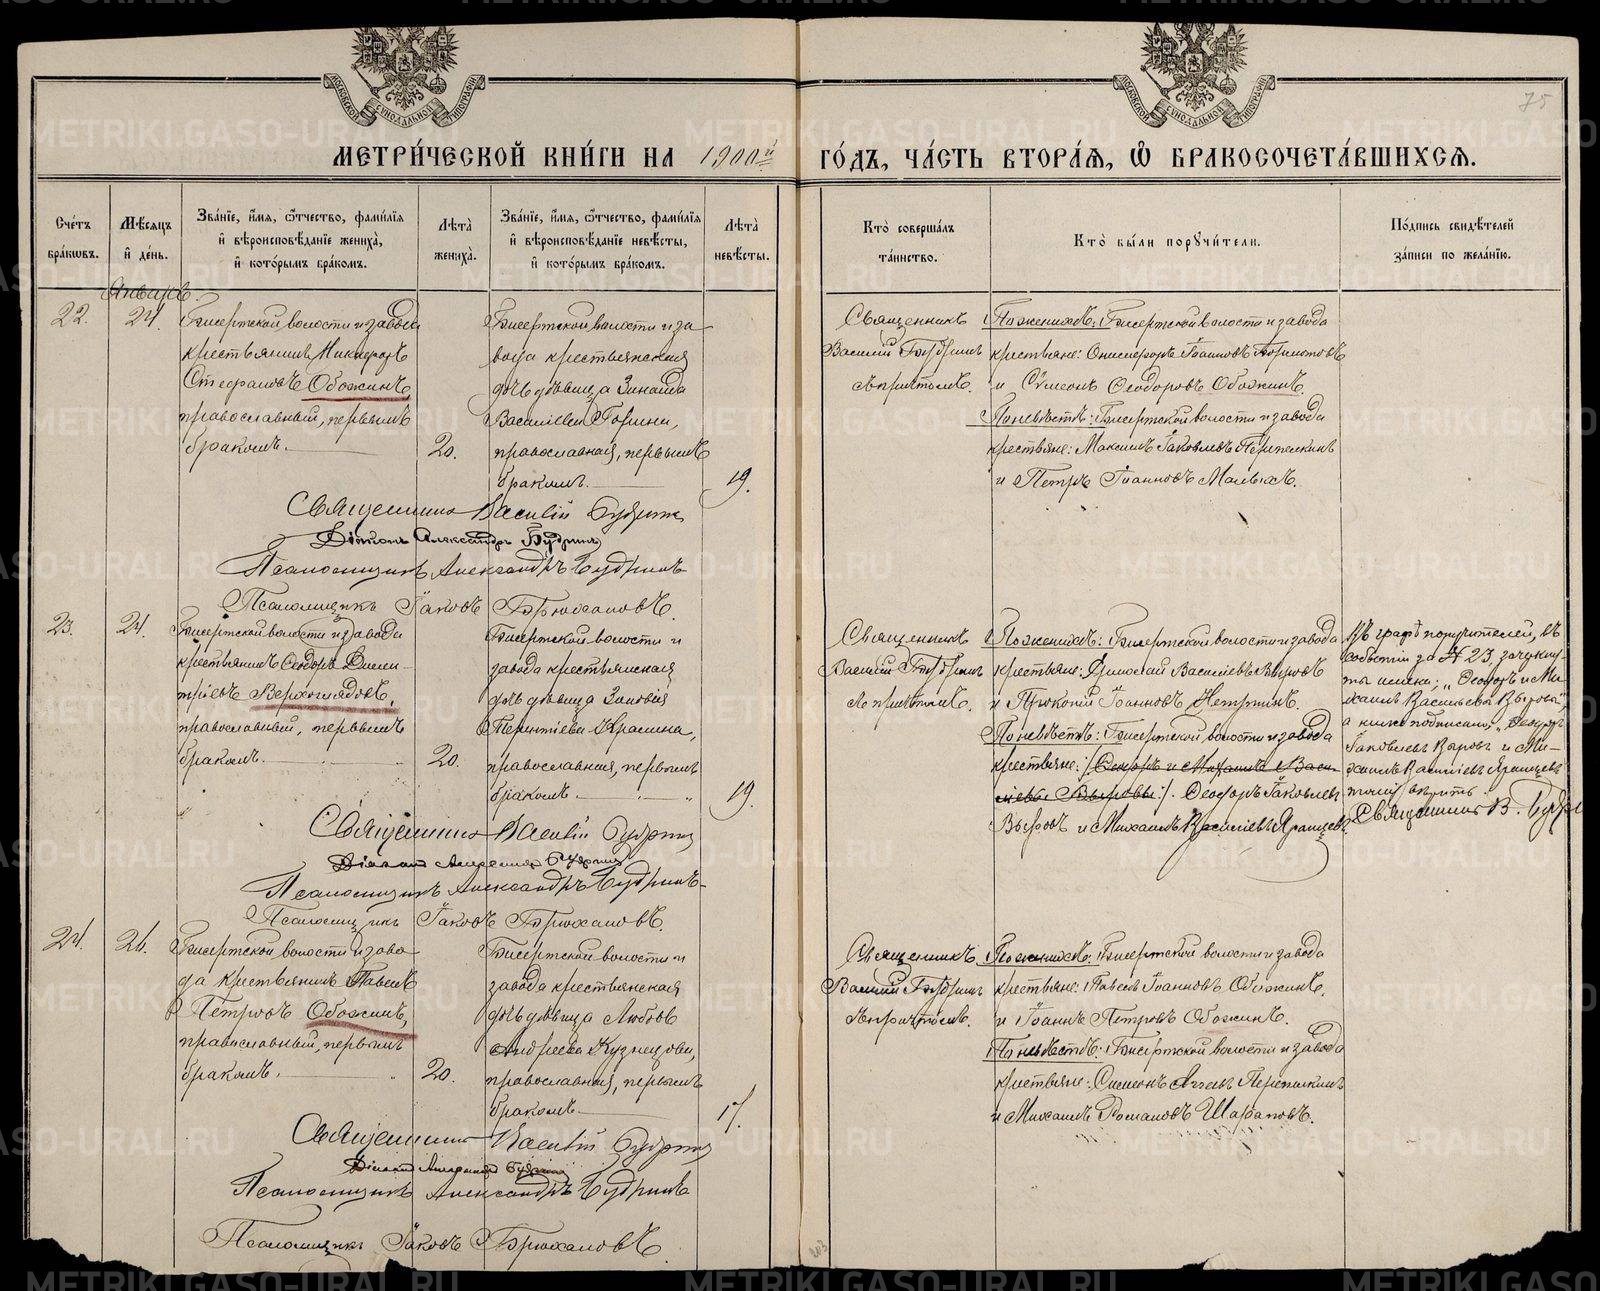 МЕТРИ́ЧЕСКОЙ КНИ́ГИ НА 1900й ГО́ДЪ, ЧА́СТЬ ВТОРА́Я, Ѡ БРАКОСОЧЕТА́ВШИХСЯ.
МОСКОВСКОЙ СѴНОДАЛЬНОЙ ТИПОГРАФІИ
МОСКОВСКОЙ СѴНОДАЛЬНОЙ ТИПОГРАФІИ
75
Счетъ
бра́кωвъ.
Мѣсяцъ
и҆ де́нь.
Зва́нїе, и҆́мя, ѻ҆́тчество, фами́лїя
и҆ вѣроисповѣ́данїе жениха̀,
и҆ кото́рымъ бра́комъ.
Лѣта̀
жениха̀.
Зва́нїе, и҆́мя, ѻ҆́тчество, фами́лїя
и҆ вѣроисповѣ́данїе невѣ́сты,
и҆ кото́рымъ бра́комъ.
Лѣта̀
невѣ́сты.
Кто̀ соверша́лъ
та́инство.
Кто̀ бы́ли поручи́тели.
По́дпись свидѣ́телей
за́писи по жела́нїю.
Январь.
22.
24.
Бисертской волости и завода
крестьянинъ Никифоръ
Стефановъ Обожинъ,
православный, первымъ
бракомъ.
20.
Бисертской волости и за-
вода крестьянская
дочь дѣвица Зинаида
Васильева Горина,
православная, первымъ
бракомъ.
19.
Священникъ
Василій Будринъ
съ причтомъ.
По женихѣ: Бисертской волости и завода
крестьяне: Онисифоръ Іоанновъ
и Симеонъ Ѳеодоровъ Обожинъ.
По невѣстѣ: Бисертской волости и завода
крестьяне: Максимъ Іаковлевъ Перепелкинъ
и Петръ Іоанновъ
Священникъ Василій Будринъ
Діаконъ Александръ Будринъ
Псаломщикъ Александръ Будринъ
Псаломщикъ Іаковъ Брюхановъ.
23.
24.
Бисертской волости и завода
крестьянинъ Ѳеодоръ Дими-
тріевъ Верхоглядовъ,
православный, первымъ
бракомъ.
20.
Бисертской волости и
завода крестьянская
дочь дѣвица Зиновія
Терентіева
православная, первымъ
бракомъ.
19.
Священникъ
Василій Будринъ
съ причтомъ.
По женихѣ: Бисертской волости и завода
крестьяне: Василіевъ Выровъ
и Прокопій Іоанновъ
По невѣстѣ: Бисертской волости и завода
крестьяне: /Ѳеодоръ и Михаилъ Васи-
лiевы Выровы/. Ѳеодоръ Іаковлевъ
Выровъ и Михаилъ Василіевъ Яранцевъ.
Въ графѣ поручителей, въ
событіи за № 23, зачеркну-
ты имена: „Ѳеодоръ и Ми-
хаилъ Васильевы Выровы",
а ниже подписано: „Ѳеодоръ
Іаковлевъ Выровъ и Ми-
хаилъ Василіевъ Яранцевъ"
тому вѣрить.
Священникъ В. Будринъ
Священникъ Василій Будринъ
Діаконъ Александръ Будринъ
Псаломщикъ Александръ Будринъ
Псаломщикъ Іаковъ Брюхановъ.
24.
26.
Бисертской волости и заво-
да крестьянинъ Павелъ
Петровъ Обожинъ,
православный, первымъ
бракомъ.
20.
Бисертской волости и
завода крестьянская
дочь дѣвица Любовь
Андреева Кузнецова,
православная, первымъ
бракомъ
17.
Священникъ
Василій Будринъ
съ причтомъ.
По женихѣ: Бисертской волости и завода
крестьяне: Павелъ Іоанновъ Обожинъ,
и Іоаннъ Петровъ Обожинъ.
По невѣстѣ: Бисертской волости и завода
крестьяне: Симеонъ Перепелкинъ
и Михаилъ Романовъ
Священникъ Василій Будринъ
Діаконъ Александръ Будринъ
Псаломщикъ Александръ Будринъ
Псаломщикъ Іаковъ Брюхановъ
METRIKI.GASO-URAL.RU